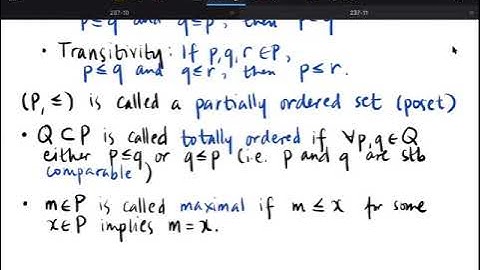 237-10 237-11
p≤q and q≤p, then p=q
• Transitivity: If p,q,r∈P,
p≤q and q≤r, then p≤r.
(P,≤) is called a partially ordered set (poset)
• Q⊂P is called totally ordered if ∀p,q∈Q
either p≤q or q≤p (i.e. p and q are stb
comparable)
• m∈P is called maximal if m≤x for some
x∈P implies m=x.